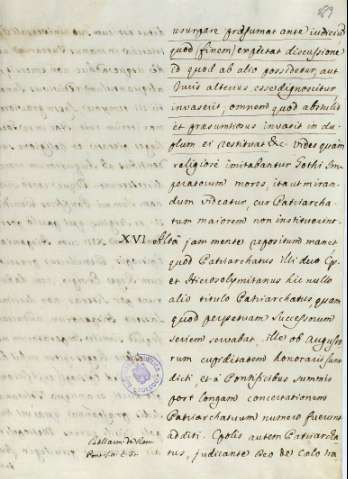 usurpare præsumat ante iudicial
quod (finem) expetat discussione
id quod ab alio possidetur, aut
Juris alterius esse dignoscitur
invaserit, omnem quod abstulit
et præsumtiosus invasit in du-
plum ei restituat &c. vides quam
religiosè imitabantur Gothi Im-
peratorum mores, ita ut miran-
dum videatur, cur Patriarcha-
tum maiorem non instituerint.
XVI. Alta jam mente repositum manet
quod Patriarchatus illi duo Cp.
et Hierosolymitanus hic nullo
alio titulo Patriarchatus quam
quod perpetuam successorum
seriem servabat. ille ob Augusto-
rum cupiditatem honoraris sunt
dicti et à Pontificibus summis
post longam concertationem
Patriarchatuum numero fuerunt
additi. Cpolis autem Patriarcha-
tus, judicante Deo de Cœlo na